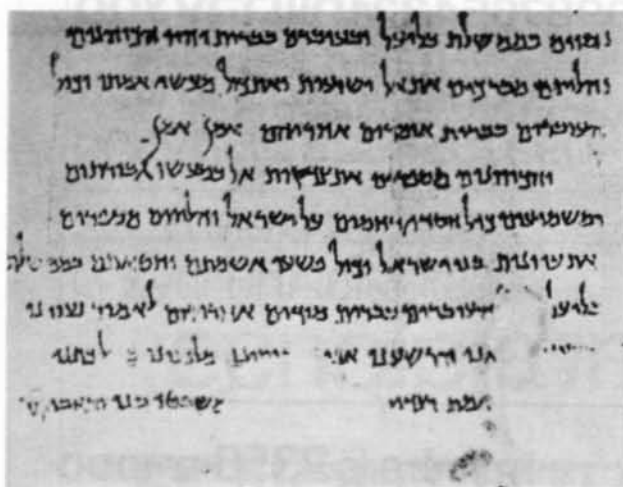 נסוים בממשלת בליעל ובעוברם בברית יהיו הכוהנים
והלויים מברכים את אל ישועות ואת כול מעשי אמתו וכול
העוברים בברית אומרים אחריהם אמן אמן
והכוהנים מספרים את צדקות אל במעשי גבורתום
ומשמיעים כול חסדי רחמים על ישראל והלויים מספרים
את עוונות בני ישראל וכול פשעי אשמתם וחטאתם בממשלת
בליעל העוברים בברית מודים אחריהם לאמור נעוינו
הרשענו אנו מלפנינו
אמת משפטו בנו